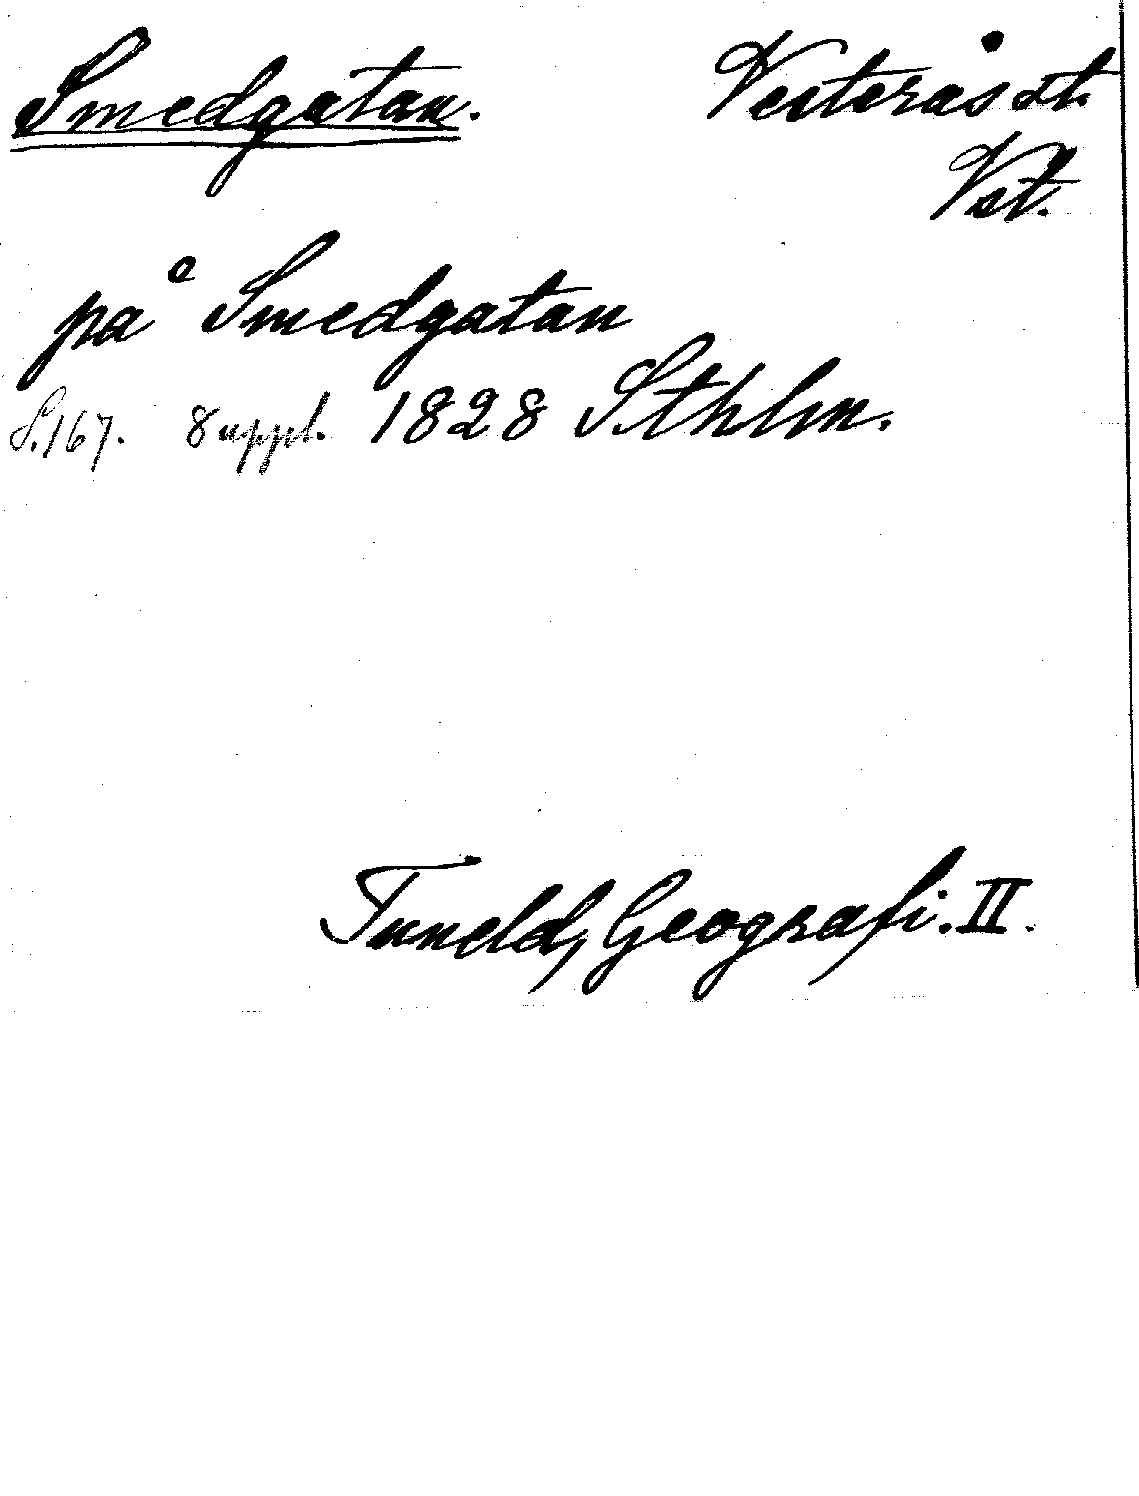 Smedgatan. Vesterås st.
Vst.
på Smedgatan
S. 167. 8 uppl. 1828 Sthlm.
Tuneld, Geografi. II.